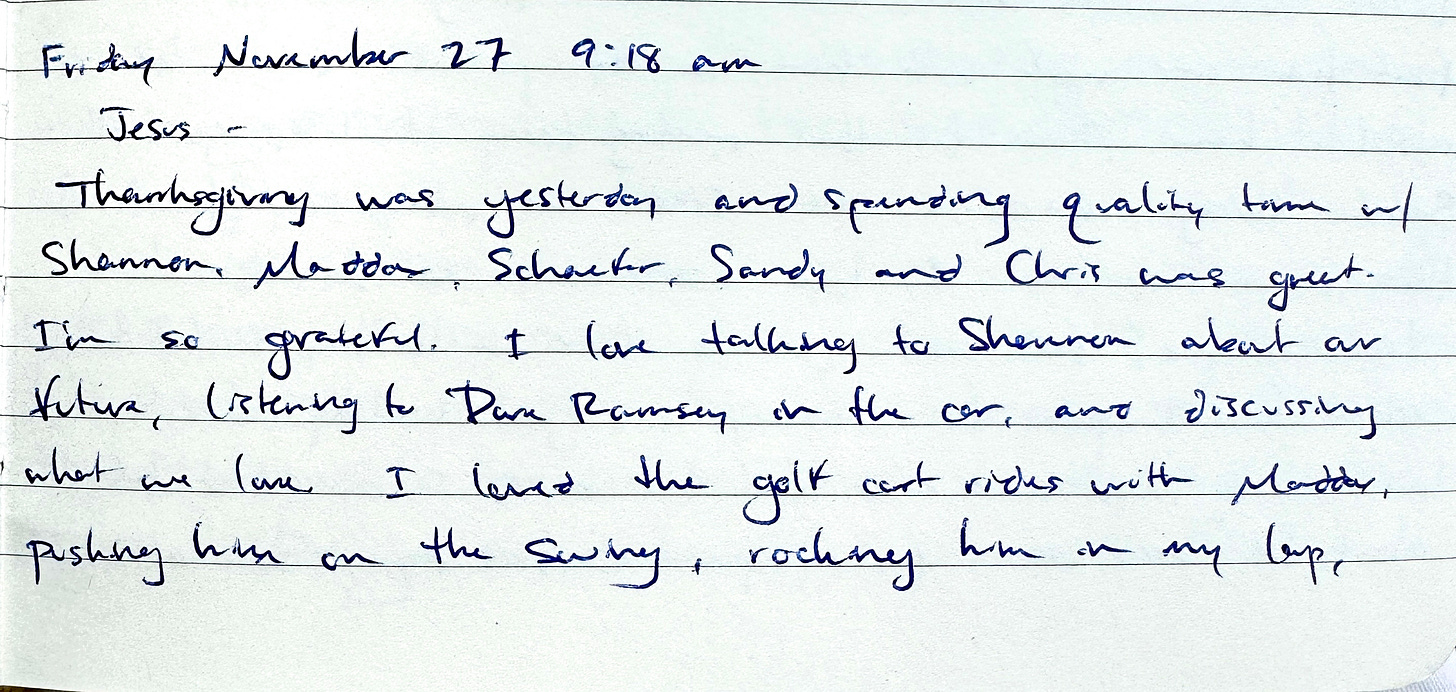 Friday November 27 9:18 am
Jesus -
Thanksgiving was yesterday and spending quality time w/
Shannon, Maddox, Schaefer, Sandy and Chris was great.
I'm so grateful. I love talking to Shannon about our
future, listening to Dave Ramsey in the car, and discussing
what we love. I loved the golf cart rides with Maddox,
pushing him on the swing, rocking him in my lap,